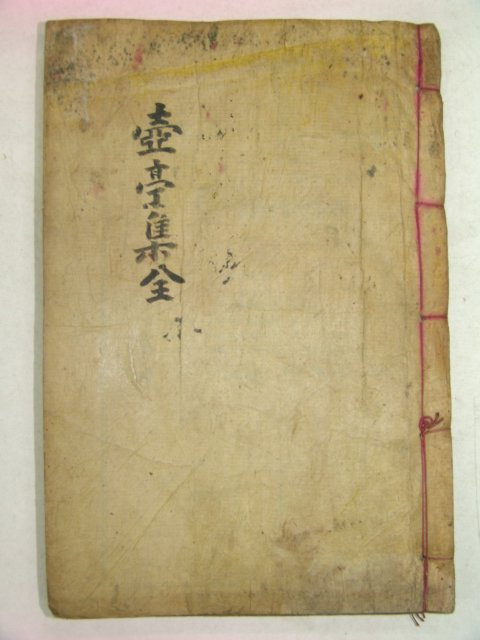 壺亭集全